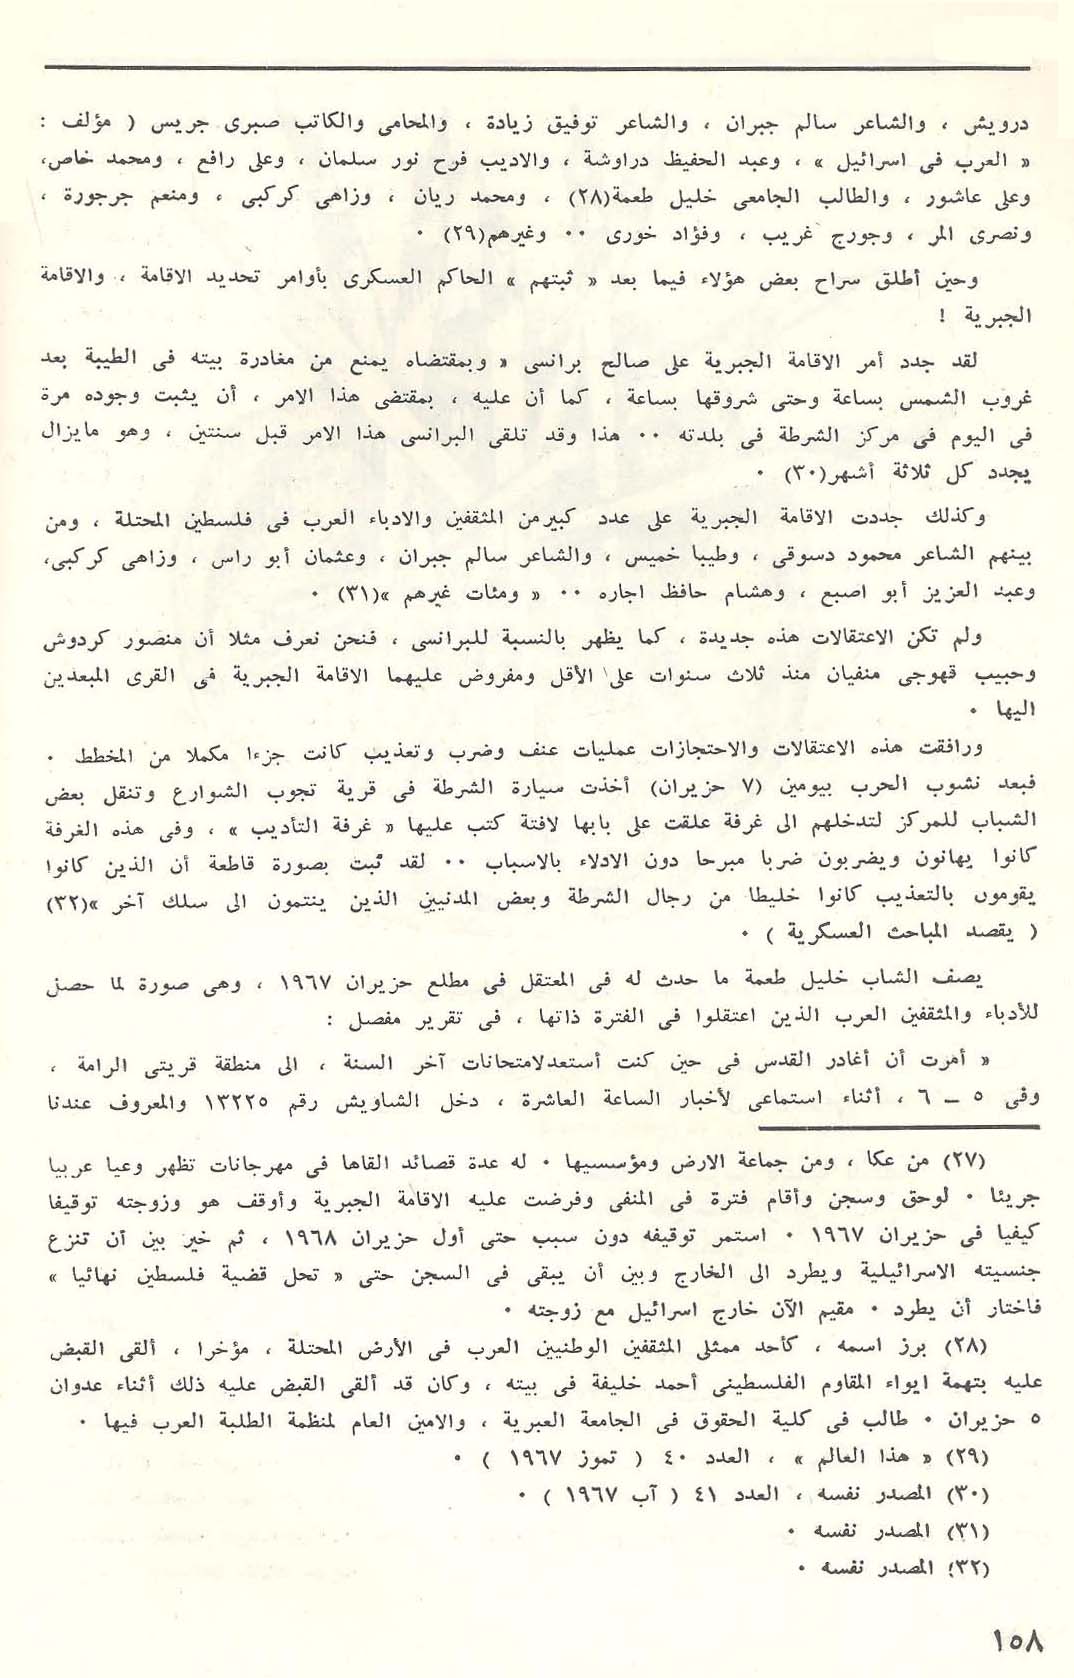 درويش ، والشاعر سالم جبران ، والشاعر توفيق زيادة ، والمحامى والكاتب صبرى جريس ( مؤلف :
« العرب فى اسرائيل » ، وعبد الحفيظ دراوشة ، والاديب فرح نور سلمان ، وعلى رافع ، ومحمد خاص،
وعلى عاشور ، والطالب الجامعى خليل طعمة(٢٨) ، ومحمد ريان ، وزاهى كركبى ، ومنعم جرجورة ،
ونصرى المر ، وجورج غريب ، وفؤاد خورى ٠٠ وغيرهم(٢٩) ٠
وحين أطلق سراح بعض هؤلاء فيما بعد « ثبتهم » الحاكم العسكرى بأوامر تحديد الاقامة ، والاقامة
الجبرية !
لقد جدد أمر الاقامة الجبرية على صالح برانسى « وبمقتضاه يمنع من مغادرة بيته فى الطيبة بعد
غروب الشمس بساعة وحتى شروقها بساعة ، كما أن عليه ، بمقتضى هذا الامر ، أن يثبت وجوده مرة
فى اليوم فى مركز الشرطة فى بلدته ٠٠ هذا وقد تلقى البرانسى هذا الامر قبل سنتين ، وهو مايزال
يجدد كل ثلاثة أشهر(٣٠) ٠
وكذلك جددت الاقامة الجبرية على عدد كبيرمن المثقفين والادباء العرب فى فلسطين المحتلة ، ومن
بينهم الشاعر محمود دسوقى ، وطيبا خميس ، والشاعر سالم جبران ، وعثمان أبو راس ، وزاهى كركبى،
وعبد العزيز أبو اصبع ، وهشام حافظ اجاره ٠٠ « ومئات غيرهم »(٣١) ٠
ولم تكن الاعتقالات هذه جديدة ، كما يظهر بالنسبة للبرانسى ، فنحن نعرف مثلا أن منصور كردوش
وحبيب قهوجى منفيان منذ ثلاث سنوات على الأقل ومفروض عليهما الاقامة الجبرية فى القرى المبعدين
اليها ٠
ورافقت هذه الاعتقالات والاحتجازات عمليات عنف وضرب وتعذيب كانت جزءا مكملا من المخطط ٠
فبعد نشوب الحرب بيومين (٧ حزيران) أخذت سيارة الشرطة فى قرية تجوب الشوارع وتنقل بعض
الشباب للمركز لتدخلهم الى غرفة علقت على بابها لافتة كتب عليها « غرفة التأديب » ، وفى هذه الغرفة
كانوا يهانون ويضربون ضربا مبرحا دون الادلاء بالاسباب ٠٠ لقد ثبت بصورة قاطعة أن الذين كانوا
يقومون بالتعذيب كانوا خليطا من رجال الشرطة وبعض المدنيين الذين ينتمون الى سلك آخر »(٣٢)
( يقصد المباحث العسكرية ) ٠
يصف الشاب خليل طعمة ما حدث له فى المعتقل فى مطلع حزيران ١٩٦٧ ، وهى صورة لما حصل
للأدباء والمثقفين العرب الذين اعتقلوا فى الفترة ذاتها ، فى تقرير مفصل :
« أمرت أن أغادر القدس فى حين كنت أستعدلامتحانات آخر السنة ، الى منطقة قريتى الرامة ،
وفى ٥ ــ ٦ ، أثناء استماعى لأخبار الساعة العاشرة ، دخل الشاويش رقم ١٣٢٢٥ والمعروف عندنا
(٢٧) من عكا ، ومن جماعة الارض ومؤسسيها ٠ له عدة قصائد القاها فى مهرجانات تظهر وعيا عربيا
جريئا ٠ لوحق وسجن وأقام فترة فى المنفى وفرضت عليه الاقامة الجبرية وأوقف هو وزوجته توقيفا
كيفيا فى حزيران ١٩٦٧ ٠ استمر توقيفه دون سبب حتى أول حزيران ١٩٦٨ ، ثم خير بين أن تنزع
جنسيته الاسرائيلية ويطرد الى الخارج وبين أن يبقى فى السجن حتى « تحل قضية فلسطين نهائيا »
فاختار أن يطرد ٠ مقيم الآن خارج اسرائيل مع زوجته ٠
(٢٨) برز اسمه ، كأحد ممثلى المثقفين الوطنيين العرب فى الأرض المحتلة ، مؤخرا ، ألقى القبض
عليه بتهمة ايواء المقاوم الفلسطينى أحمد خليفة فى بيته ، وكان قد ألقى القبض عليه ذلك أثناء عدوان
٥ حزيران ٠ طالب فى كلية الحقوق فى الجامعة العبرية ، والامين العام لمنظمة الطلبة العرب فيها ٠
(٢٩) « هذا العالم » ، العدد ٤٠ ( تموز ١٩٦٧ ) ٠
(٣٠) المصدر نفسه ، العدد ٤١ ( آب ١٩٦٧ ) ٠
(٣١) المصدر نفسه ٠
(٣٢) المصدر نفسه ٠
١٥٨